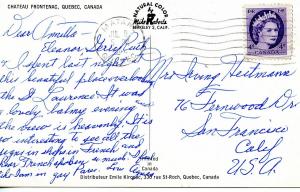 CHATEAU FRONTENAC, QUEBEC, CANADA
NATURAL COLOR
Mike Roberts
BERKELEY 2, CALIF.
CANADA
Dear
Eleanor
I spent last night in
this beautiful place overlooking
the St Lawrence. It was
a lovely balmy evening and
the breeze is heavenly. It is
so interesting to see all the
signs in shops in French and
hear French spoken so much. I feel
like I am in gay Paris. Love
Mrs Irving Heitmann
76 Fernwood Dr
San Francisco
Calif
U.S.A
Distributeur Emile Kirouac, 130 rue St-Roch, Quebec, Canada